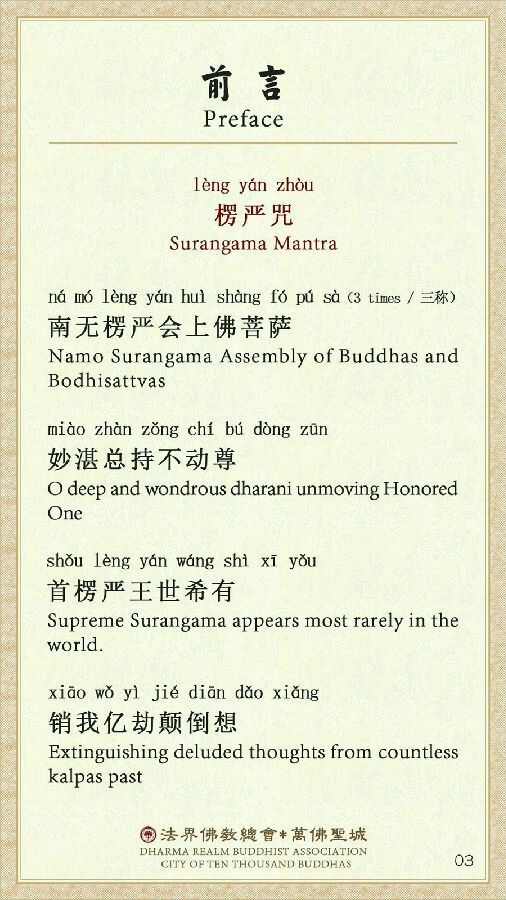 前言
Preface
lèng yán zhòu
楞严咒
Surangama Mantra
ná mó lèng yán huì shàng fó pú sà (3 times / 三称)
南无楞严会上佛菩萨
Namo Surangama Assembly of Buddhas and
Bodhisattvas
miào zhàn zǒng chí bú dòng zūn
妙湛总持不动尊
O deep and wondrous dharani unmoving Honored
One
shǒu lèng yán wáng shì xī yǒu
首楞严王世希有
Supreme Surangama appears most rarely in the
world.
xiāo wǒ yì jié diān dǎo xiǎng
销我亿劫颠倒想
Extinguishing deluded thoughts from countless
kalpas past
法界佛教總會*萬佛聖城
DHARMA REALM BUDDHIST ASSOCIATION
CITY OF TEN THOUSAND BUDDHAS
03